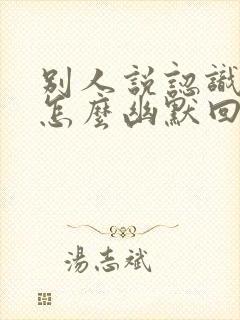 別人說認識
怎麼幽默回
湯志斌